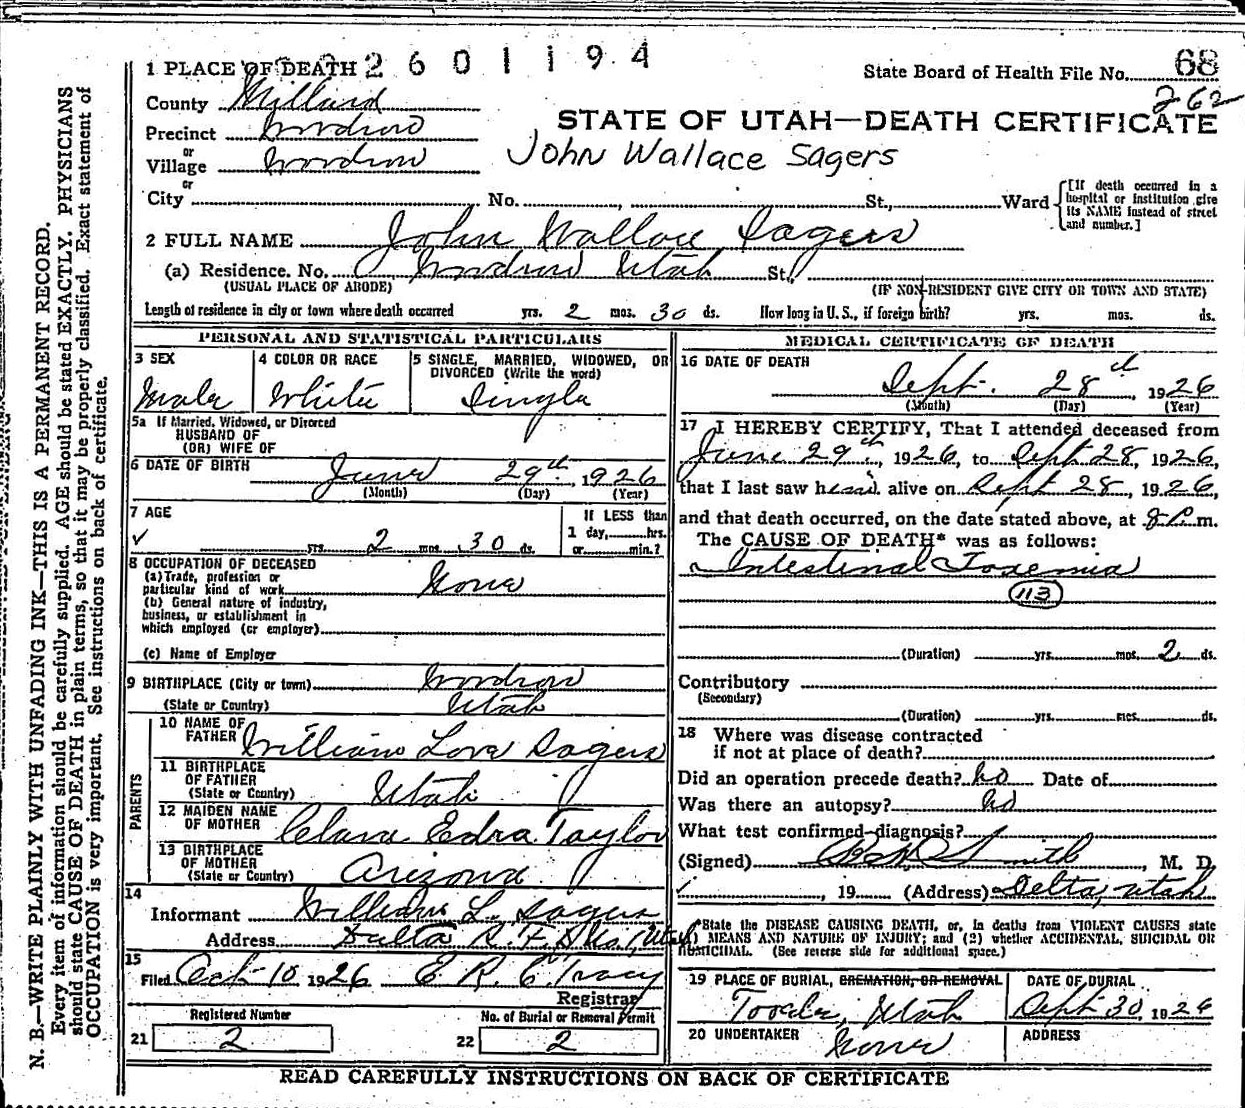 2601194
1 PLACE OF DEATH
State Board of Health File No. 68
262
County Millard
STATE OF UTAH—DEATH CERTIFICATE
Precinct Woodrow
or
Village Woodrow
John Wallace Sagers
or
City No. , St., Ward
[If death occurred in a hospital or institution give its NAME instead of street and number.]
2 FULL NAME John Wallace Sagers
(a) Residence. No. Woodrow Utah St,
(USUAL PLACE OF ABODE) (IF NON-RESIDENT GIVE CITY OR TOWN AND STATE)
Length of residence in city or town where death occurred yrs. 2 mos. 30 ds. How long in U.S., if foreign birth? yrs. mos. ds.
PERSONAL AND STATISTICAL PARTICULARS
3 SEX
Male
4 COLOR OR RACE
White
5 SINGLE, MARRIED, WIDOWED, OR
DIVORCED (Write the word)
Single
5a If Married, Widowed, or Divorced
HUSBAND OF
(OR) WIFE OF
6 DATE OF BIRTH
June 29th, 1926
(Month) (Day) (Year)
7 AGE
yrs. 2 mos. 30 ds.
If LESS than
1 day, hrs.
or min.?
8 OCCUPATION OF DECEASED
(a) Trade, profession or
particular kind of work None
(b) General nature of industry,
business, or establishment in
which employed (or employer)
(c) Name of Employer
9 BIRTHPLACE (City or town) Woodrow
(State or Country) Utah
PARENTS
10 NAME OF
FATHER William Love Sagers
11 BIRTHPLACE
OF FATHER
(State or Country) Utah
12 MAIDEN NAME
OF MOTHER Clara Edra Taylor
13 BIRTHPLACE
OF MOTHER
(State or Country) Arizona
14
Informant William L. Sagers
Address Delta R.F.D. No. 1, Utah
15
Filed Oct 10 1926 E R C Tracy
Registrar
Registered Number
21 2
No. of Burial or Removal Permit
22 2
MEDICAL CERTIFICATE OF DEATH
16 DATE OF DEATH
Sept. 28th 1926
(Month) (Day) (Year)
17 I HEREBY CERTIFY, That I attended deceased from
June 29th, 1926, to Sept 28, 1926,
that I last saw h alive on Sept 28, 1926,
and that death occurred, on the date stated above, at 8 P.m.
The CAUSE OF DEATH* was as follows:
Intestinal Toxemia
113
(Duration) yrs. mos. 2 ds.
Contributory
(Secondary)
(Duration) yrs. mos. ds.
18 Where was disease contracted
if not at place of death?
Did an operation precede death? no Date of
Was there an autopsy? no
What test confirmed diagnosis?
(Signed) Smith, M. D.
, 19 (Address) Delta, Utah
*State the DISEASE CAUSING DEATH, or, in deaths from VIOLENT CAUSES state
MEANS AND NATURE OF INJURY; and (2) whether ACCIDENTAL, SUICIDAL OR
HOMICIDAL. (See reverse side for additional space.)
19 PLACE OF BURIAL, CREMATION, OR REMOVAL
Tooele, Utah
DATE OF BURIAL
Sept 30, 1926
20 UNDERTAKER
None
ADDRESS
READ CAREFULLY INSTRUCTIONS ON BACK OF CERTIFICATE
N. B.—WRITE PLAINLY WITH UNFADING INK—THIS IS A PERMANENT RECORD.
Every item of information should be carefully supplied. AGE should be stated EXACTLY. PHYSICIANS
should state CAUSE OF DEATH in plain terms, so that it may be properly classified. Exact statement of
OCCUPATION is very important. See instructions on back of certificate.